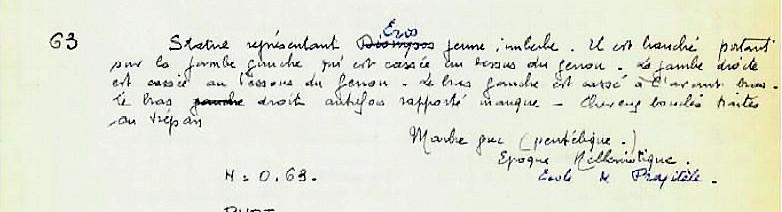 Eros
63 Statue représentant Dionysos jeune, imberbe. Il est hanché portant
sur la jambe gauche qui est cassée au dessus du genou. La jambe droite
est cassée au dessous du genou. Le bras gauche est cassé à l'avant bras.
Le bras gauche droit autrefois rapporté manque - Cheveux bouclés traités
au trépan
Marbre grec (pentélique.)
Epoque Hellenistique.
H = 0,63. Ecole de Praxitèle.